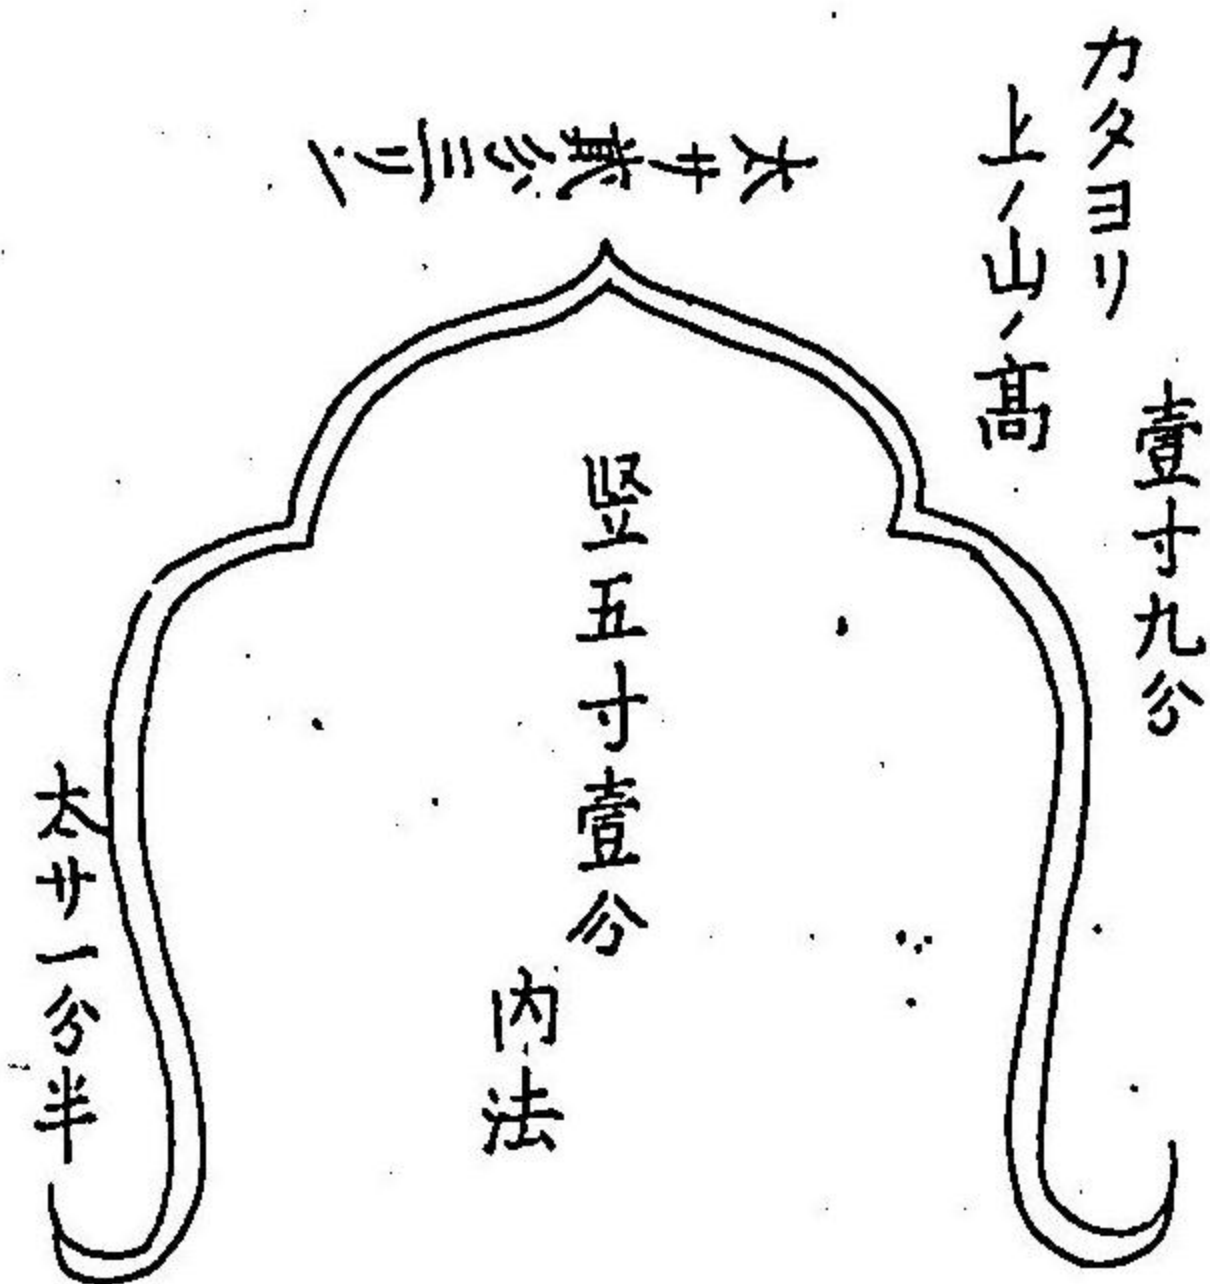 カタヨリ
上ノ山ノ高
壹寸九分
太サ貳分三リン
竪五寸壹分
内法
太サ一分半